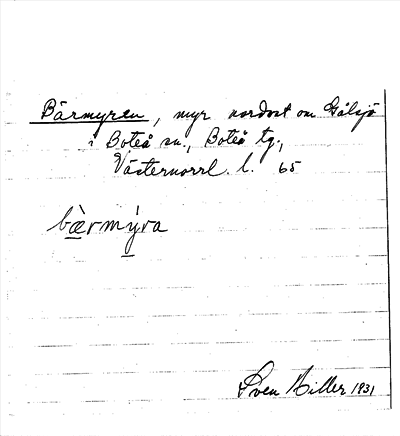 Bärmyren, myr nordost om Gålsjö
i Boteå sn., Boteå tg.,
Västernorrl. l. 65
bærmýra
Sven Hiller 1931